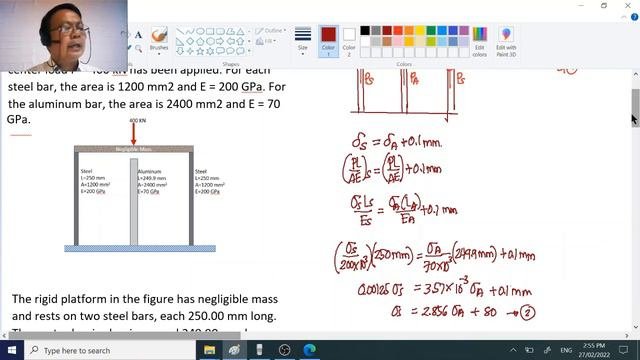 Brushes
Shapes
Size
Color 1
Color 2
Edit colors
Edit with Paint 3D
center load P = 400 kN has been applied. For each
steel bar, the area is 1200 mm2 and E = 200 GPa. For
the aluminum bar, the area is 2400 mm2 and E = 70
GPa.
400 KN
Negligible Mass
Steel
L=250 mm
A=1200 mm²
E=200 GPa
Aluminum
L=249.9 mm
A=2400 mm²
E=70 GPa
Steel
L=250 mm
A=1200 mm²
E=200 GPa
The rigid platform in the figure has negligible mass
and rests on two steel bars, each 250.00 mm long.
Ps PA Ps
δs = δA + 0.1mm
(PL/AE)s = (PL/AE) + 0.1 mm
σs Ls/Es = σA(LA)/EA + 0.1 mm
(σs/200×10³)(250mm) = σA/70×10³ (249.9mm) + 0.1mm
0.00125 σs = 3.57×10⁻³ σA + 0.1mm
σs = 2.856 σA + 80 → ②
Type here to search
26°C
ENG
2:55 PM
27/02/2022